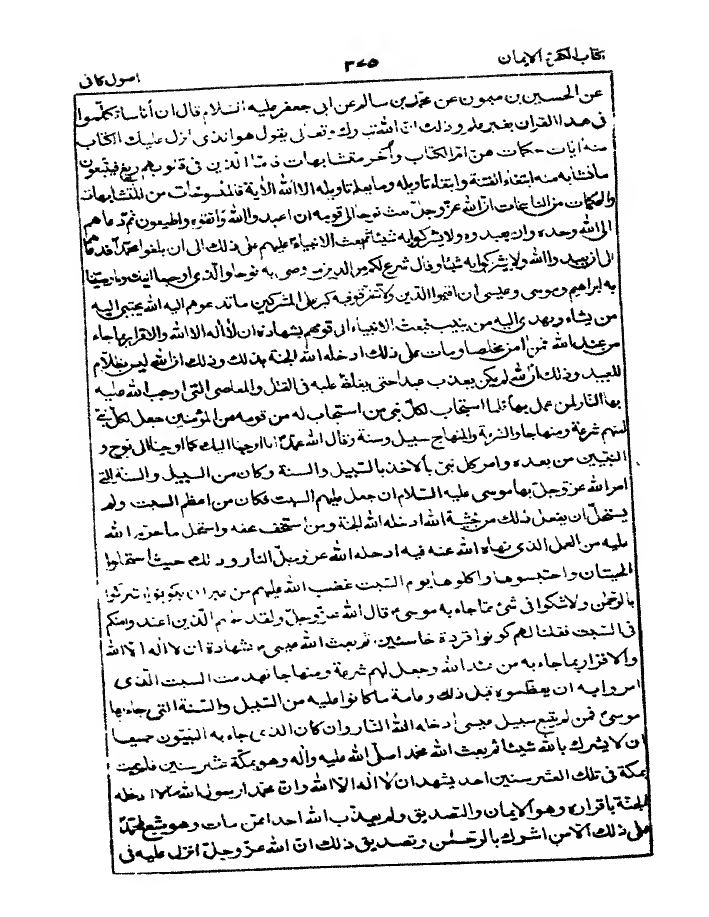 كتاب الكفر والايمان
٣٠٥
اصول كافى
عن الحسين بن ميمون عن محمد بن سالم عن ابى جعفر عليه السلام قال ان أناسا تكلموا
فى هذا القران بغير علم وذلك ان الله تبارك وتعالى يقول هو الذى انزل عليك الكتاب
منه ايات محكمات هن ام الكتاب وأخر متشابهات فامّا الذين فى قلوبهم زيغ فيتبعون
ما تشابه منه ابتغاء الفتنة وابتغاء تاويله وما يعلم تاويله الا الله الأية فالمنسوخات من المتشابهات
والمحكمات من الناسخات ان الله عزوجلّ بعث نوحا الى قومه ان اعبدوا الله واتقوه واطيعون ثم دعاهم
الى الله وحده وان يعبدوه ولا يشركوا به شيئا ثم بعث الانبياء عليهم على ذلك الى ان بلغوا محمدا فدعاهم
الى ان يعبدوا الله ولا يشركوا به شيئا وقال شرع لكم من الدين ما وصى به نوحا والذى اوحينا اليك وما وصينا
به ابراهيم وموسى وعيسى ان اقيموا الدين ولا تتفرقوا فيه كبر على المشركين ما تدعوهم اليه الله يجتبى اليه
من يشاء ويهدى اليه من ينيب فبعث الانبياء الى قومهم بشهادة ان لا أله الا الله والاقرار بما جاء
من عند الله فمن أمن مخلصا ومات على ذلك ادخله الله الجنة بذلك وذلك ان الله ليس بظلام
للعبيد وذلك ان الله لم يكن يعذب عبدا حتى يغلظ عليه فى القتل والمعاصى التى اوجب الله عليه
بها النار لمن عمل بها فلما استجاب لكل نبى من استجاب له من قومه من المؤمنين جعل لكل نبى
منهم شرعة ومنهاجا والشرعة والمنهاج سبيل وسنة وقال الله لمحمد انا اوحينا اليك كما اوحينا الى نوح و
النبيين من بعده وامر كل نبى بالاخذ بالسبيل والسنة وكان من السبيل والسنة التى
امر الله عزوجلّ بها موسى عليه السلام ان جعل عليهم السبت فكان من اعظم السبت ولم
يستحلّ ان يفعل ذلك من خشية الله ادخله الله الجنة ومن استخف بحقه واستحل ما حرم الله
عليه من العمل الذى نهاه الله عنه فيه ادخله الله عزوجلّ النار وذلك حيث استحلوا
الحيتان واحتبسوها واكلوها يوم السبت غضب الله عليهم من غير ان يكونوا اشركوا
بالرحمن ولا شكوا فى شئ مما جاء به موسىٰ قال الله عزوجلّ ولقد علمتم الذين اعتدوا منكم
فى السبت فقلنا لهم كونوا قردة خاسئين ثم بعث الله عيسىٰ بشهادة ان لا اله الا الله
والاقرار بما جاء به من عند الله وجعل لهم شرعة ومنهاجا فهدمت السبت الذى
امروا به ان يعظموه قبل ذلك وعامة ما كانوا عليه من السبيل والسنة التى جاء بها
موسىٰ فمن لم يتبع سبيل عيسى ادخله الله النار وان كان الذى جاء به النبيون جميعا
ان لا يشرك بالله شيئا ثم بعث الله محمدا صلّى الله عليه واله وهو بمكة عشر سنين فلم يمت
بمكة فى تلك العشر سنين احد يشهد ان لا اله الا الله وان محمدا رسول الله الا ادخله
الجنة باقراره وهو الايمان والتصديق ولم يعذب الله احدا ممن مات وهو متبع لمحمد
على ذلك الا من اشرك بالرحمٰن وتصديق ذلك ان الله عزوجلّ انزل عليه فى